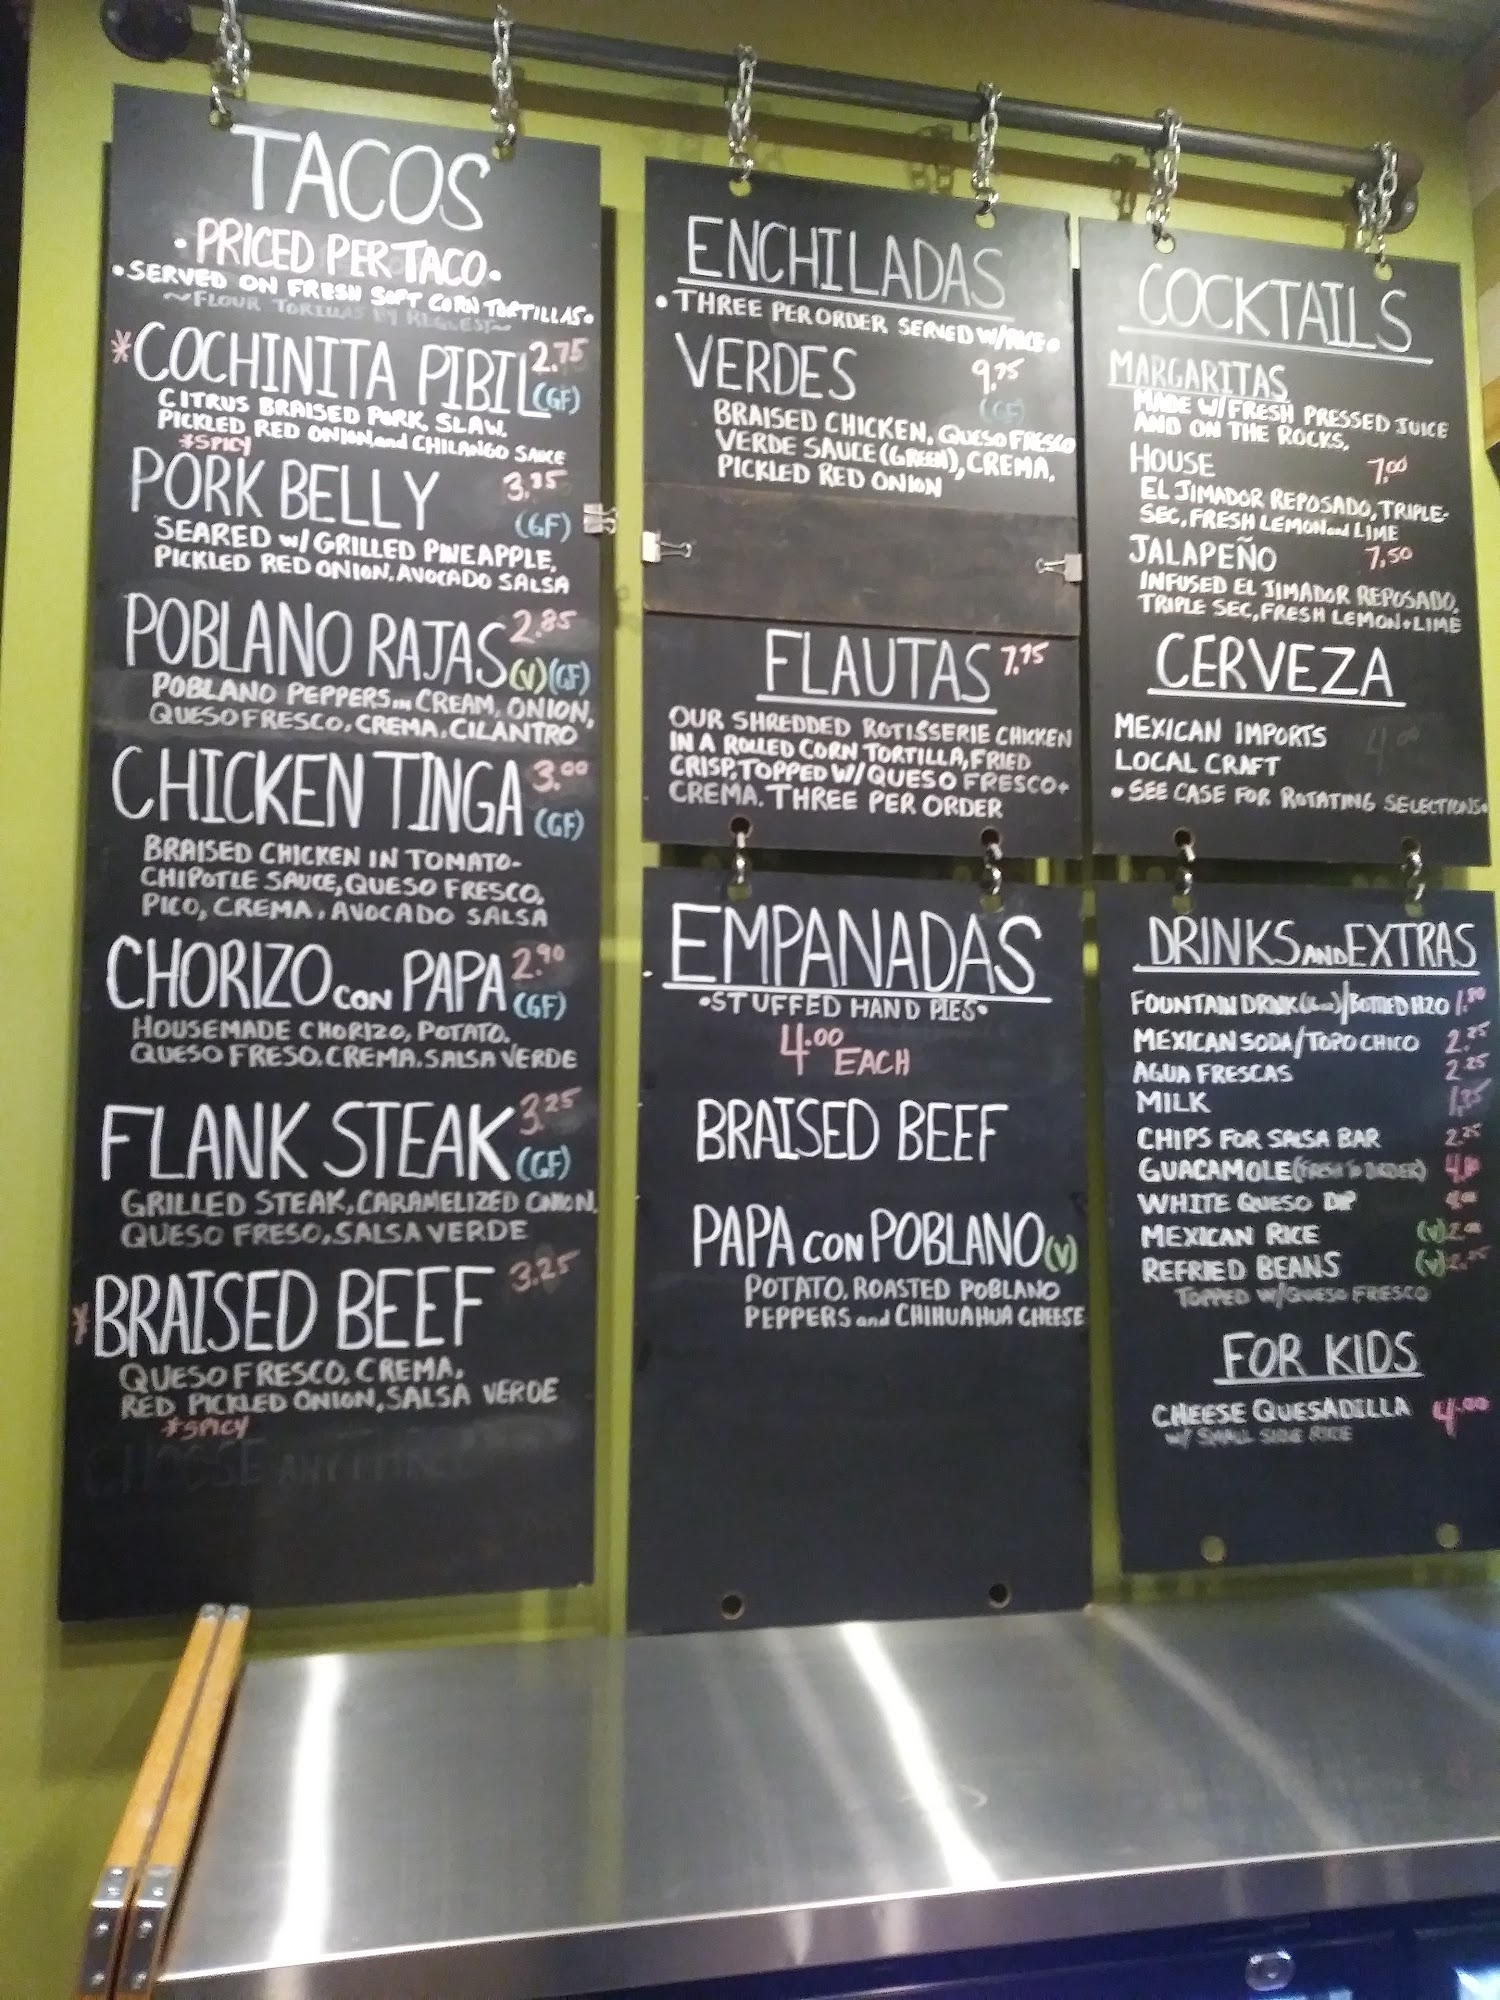 TACOS
• PRICED PER TACO •
• SERVED ON FRESH SOFT CORN TORTILLAS •
~ FLOUR TORILLAS BY REQUEST ~
*COCHINITA PIBIL 2.75
(GF)
CITRUS BRAISED PORK, SLAW,
PICKLED RED ONION and CHILANGO SAUCE
*SPICY
PORK BELLY
(GF)
SEARED W/ GRILLED PINEAPPLE,
PICKLED RED ONION, AVOCADO SALSA
POBLANO RAJAS 2.85
(V)(GF)
POBLANO PEPPERS IN CREAM, ONION,
QUESO FRESCO, CREMA, CILANTRO
CHICKEN TINGA 3.00
(GF)
BRAISED CHICKEN IN TOMATO-
CHIPOTLE SAUCE, QUESO FRESCO,
PICO, CREMA, AVOCADO SALSA
CHORIZO CON PAPA 2.90
(GF)
HOUSEMADE CHORIZO, POTATO,
QUESO FRESO, CREMA, SALSA VERDE
FLANK STEAK 3.25
(GF)
GRILLED STEAK, CARAMELIZED ONION,
QUESO FRESO, SALSA VERDE
*BRAISED BEEF 3.25
QUESO FRESCO, CREMA,
RED PICKLED ONION, SALSA VERDE
*SPICY
CHOOSE ANY THREE
ENCHILADAS
• THREE PER ORDER SERVED W/RICE •
VERDES
(GF)
BRAISED CHICKEN, QUESO FRESCO
VERDE SAUCE (GREEN), CREMA,
PICKLED RED ONION
FLAUTAS
OUR SHREDDED ROTISSERIE CHICKEN
IN A ROLLED CORN TORTILLA, FRIED
CRISP, TOPPED W/QUESO FRESCO +
CREMA. THREE PER ORDER
EMPANADAS
• STUFFED HAND PIES •
4.00 EACH
BRAISED BEEF
PAPA CON POBLANO (V)
POTATO, ROASTED POBLANO
PEPPERS and CHIHUAHUA CHEESE
COCKTAILS
MARGARITAS
MADE W/FRESH PRESSED JUICE
AND ON THE ROCKS.
HOUSE 7.00
EL JIMADOR REPOSADO, TRIPLE-
SEC, FRESH LEMON and LIME
JALAPEÑO 7.50
INFUSED EL JIMADOR REPOSADO,
TRIPLE SEC, FRESH LEMON + LIME
CERVEZA
MEXICAN IMPORTS 4.00
LOCAL CRAFT
• SEE CASE FOR ROTATING SELECTIONS •
DRINKS AND EXTRAS
FOUNTAIN DRINK /BOTTLED H2O
MEXICAN SODA/TOPO CHICO 2.25
AGUA FRESCAS 2.25
MILK
CHIPS FOR SALSA BAR 2.25
GUACAMOLE (FRESH TO ORDER)
WHITE QUESO DIP
MEXICAN RICE (V)
REFRIED BEANS (V)
TOPPED W/QUESO FRESCO
FOR KIDS
CHEESE QUESADILLA 4.00
W/ SMALL SIDE RICE